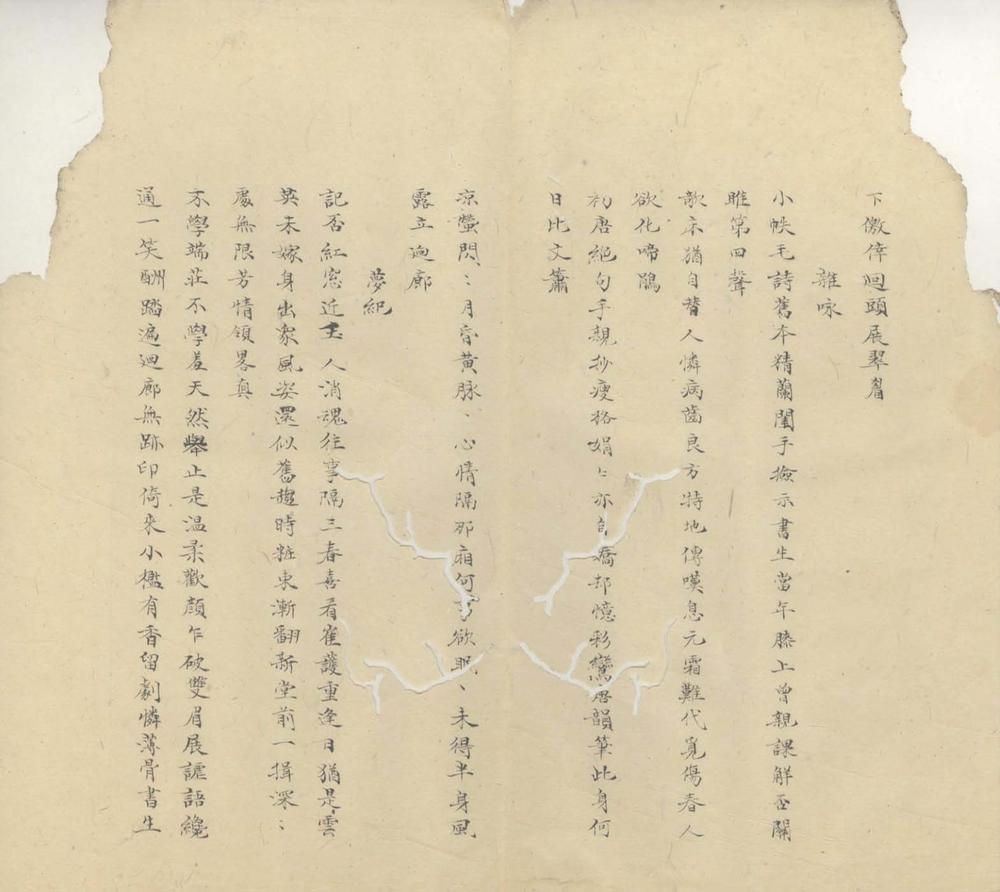 下儌倖迴頭展翠眉
雜咏
小帙毛詩舊本精蘭閨手撿示書生當年膝上曾親課解否關
雎第四聲
欹床猶自替人憐病齒良方特地傳嘆息元霜難代覓傷春人
欲化啼鵑
初唐絕句手親抄瘦格娟〻亦自嬌却憶彩鸞唐韻筆此身何
日比文簫
凉螢閃〻月昏黃脉〻心情隔那廂何事欲眠〻未得半身風
露立迴廊
夢紀
記否紅窓近玉人消魂徃事隔三春喜看崔護重逢日猶是雲
英未嫁身出衆風姿還似舊趨時粧束漸翻新堂前一揖深〻
處無限芳情領畧真
不學端莊不學羞天然舉止是温柔歡顔乍破雙眉展謔語纔
通一笑酬踏遍迴廊無跡印倚來小檻有香留劇憐薄骨書生